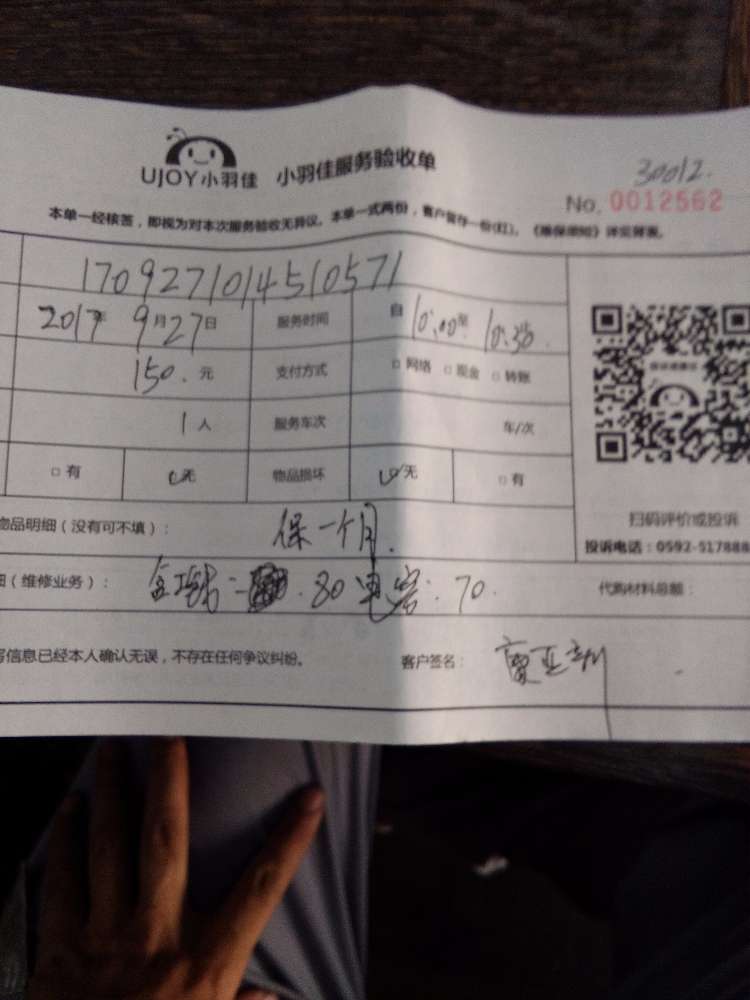 UJOY小羽佳 小羽佳服务验收单
30012.
No. 0012562
本单一经核签，即视为对本次服务验收无异议。本单一式两份，客户留存一份(红)。《维保须知》详见背面。
1709271014510571
2017年 9月27日 服务时间 自 10:00至 10:30.
150.元 支付方式 □ 网络 □ 现金 □ 转账
1人 服务车次 车/次
□ 有 无 物品损坏 无 □ 有
扫码评价或投诉
投诉电话：0592-517888
物品明细（没有可不填）： 保一个月.
（维修业务）： 80 电容：70. 代购材料总额：
写信息已经本人确认无误，不存在任何争议纠纷。 客户签名：